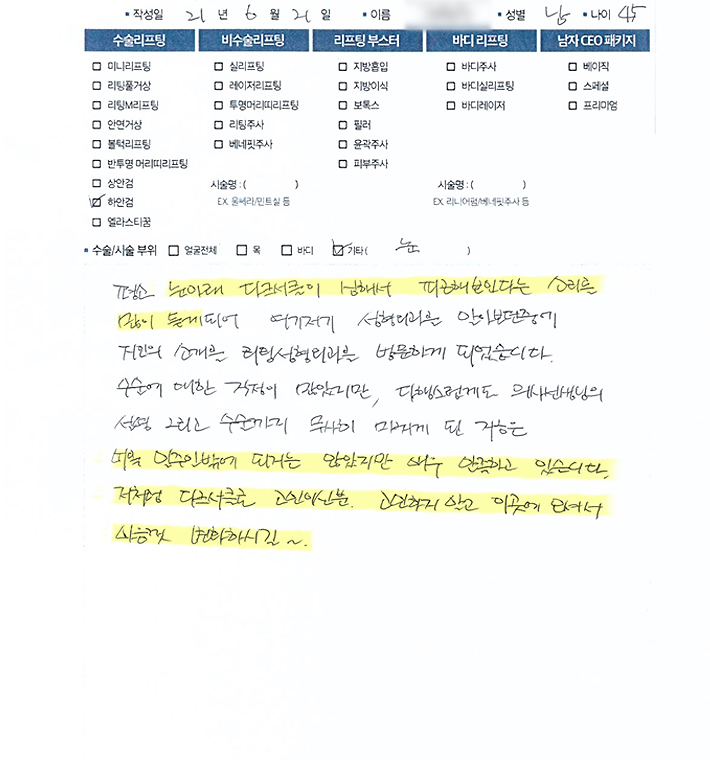 • 작성일 21 년 6 월 21 일 • 이름 • 성별 남 • 나이 45
수술리프팅 비수술리프팅 리프팅 부스터 바디 리프팅 남자 CEO 패키지
미니리프팅 실리프팅 지방흡입 바디주사 베이직
리팅풀거상 레이저리프팅 지방이식 바디실리프팅 스페셜
리팅M리프팅 투명머리띠리프팅 보톡스 바디레이저 프리미엄
안면거상 리팅주사 필러
볼턱리프팅 베네핏주사 윤곽주사
반투명 머리띠리프팅 피부주사
상안검 시술명 : ( ) 시술명 : ( )
하안검 EX. 울쎄라/민트실 등 EX. 리니어펌/베네핏주사 등
엘라스티꿈
• 수술/시술 부위 얼굴전체 목 바디 기타 ( 눈 )
평소 눈아래 다크서클이 심해서 피곤해보인다는 소리를
많이 듣게되어 여기저기 성형외과를 알아보던중에
지인의 소개로 리팅성형외과를 방문하게 되었습니다.
수술에 대한 걱정이 많았지만, 다행스럽게도 의사선생님의
설명 그리고 수술까지 무사히 마치게 된 지금은
비록 일주일밖에 되지는 않았지만 매우 만족하고 있습니다.
저처럼 다크서클로 고민이신분. 고민하지 않고 이곳에 오셔서
변화하시길~.